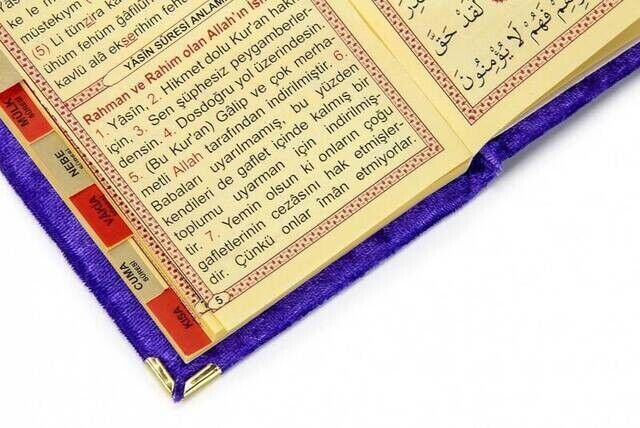 ke le m
müstekym
(5) Li tünzira k
ühüm fehüm ğâfilûn
kavlü alâ ekserihim fehüm
YASİN SÛRESİ ANLAMI
Rahman ve Rahim olan Allah'ın is
1. Yâsîn, 2. Hikmet dolu Kur'an hakkı
için, 3. Sen şüphesiz peygamberler-
densin. 4. Dosdoğru yol üzerindesin.
5. (Bu Kur'an) Gâlip ve çok merha-
metli Allah tarafından indirilmiştir. 6.
Babaları uyarılmamış, bu yüzden
kendileri de gaflet içinde kalmış bir
toplumu uyarman için indirilmiş-
tir. 7. Yemin olsun ki onların çoğu
gafletlerinin cezâsını hak etmişler-
dir. Çünkü onlar îmân etmiyorlar.
5
لَقَدْ حَقَّ
فَهُمْ لَا يُؤْمِنُونَ
MÜLK
SÛRESİ
NEBE
VAKIA
CUMA
SÛRESİ
KISA